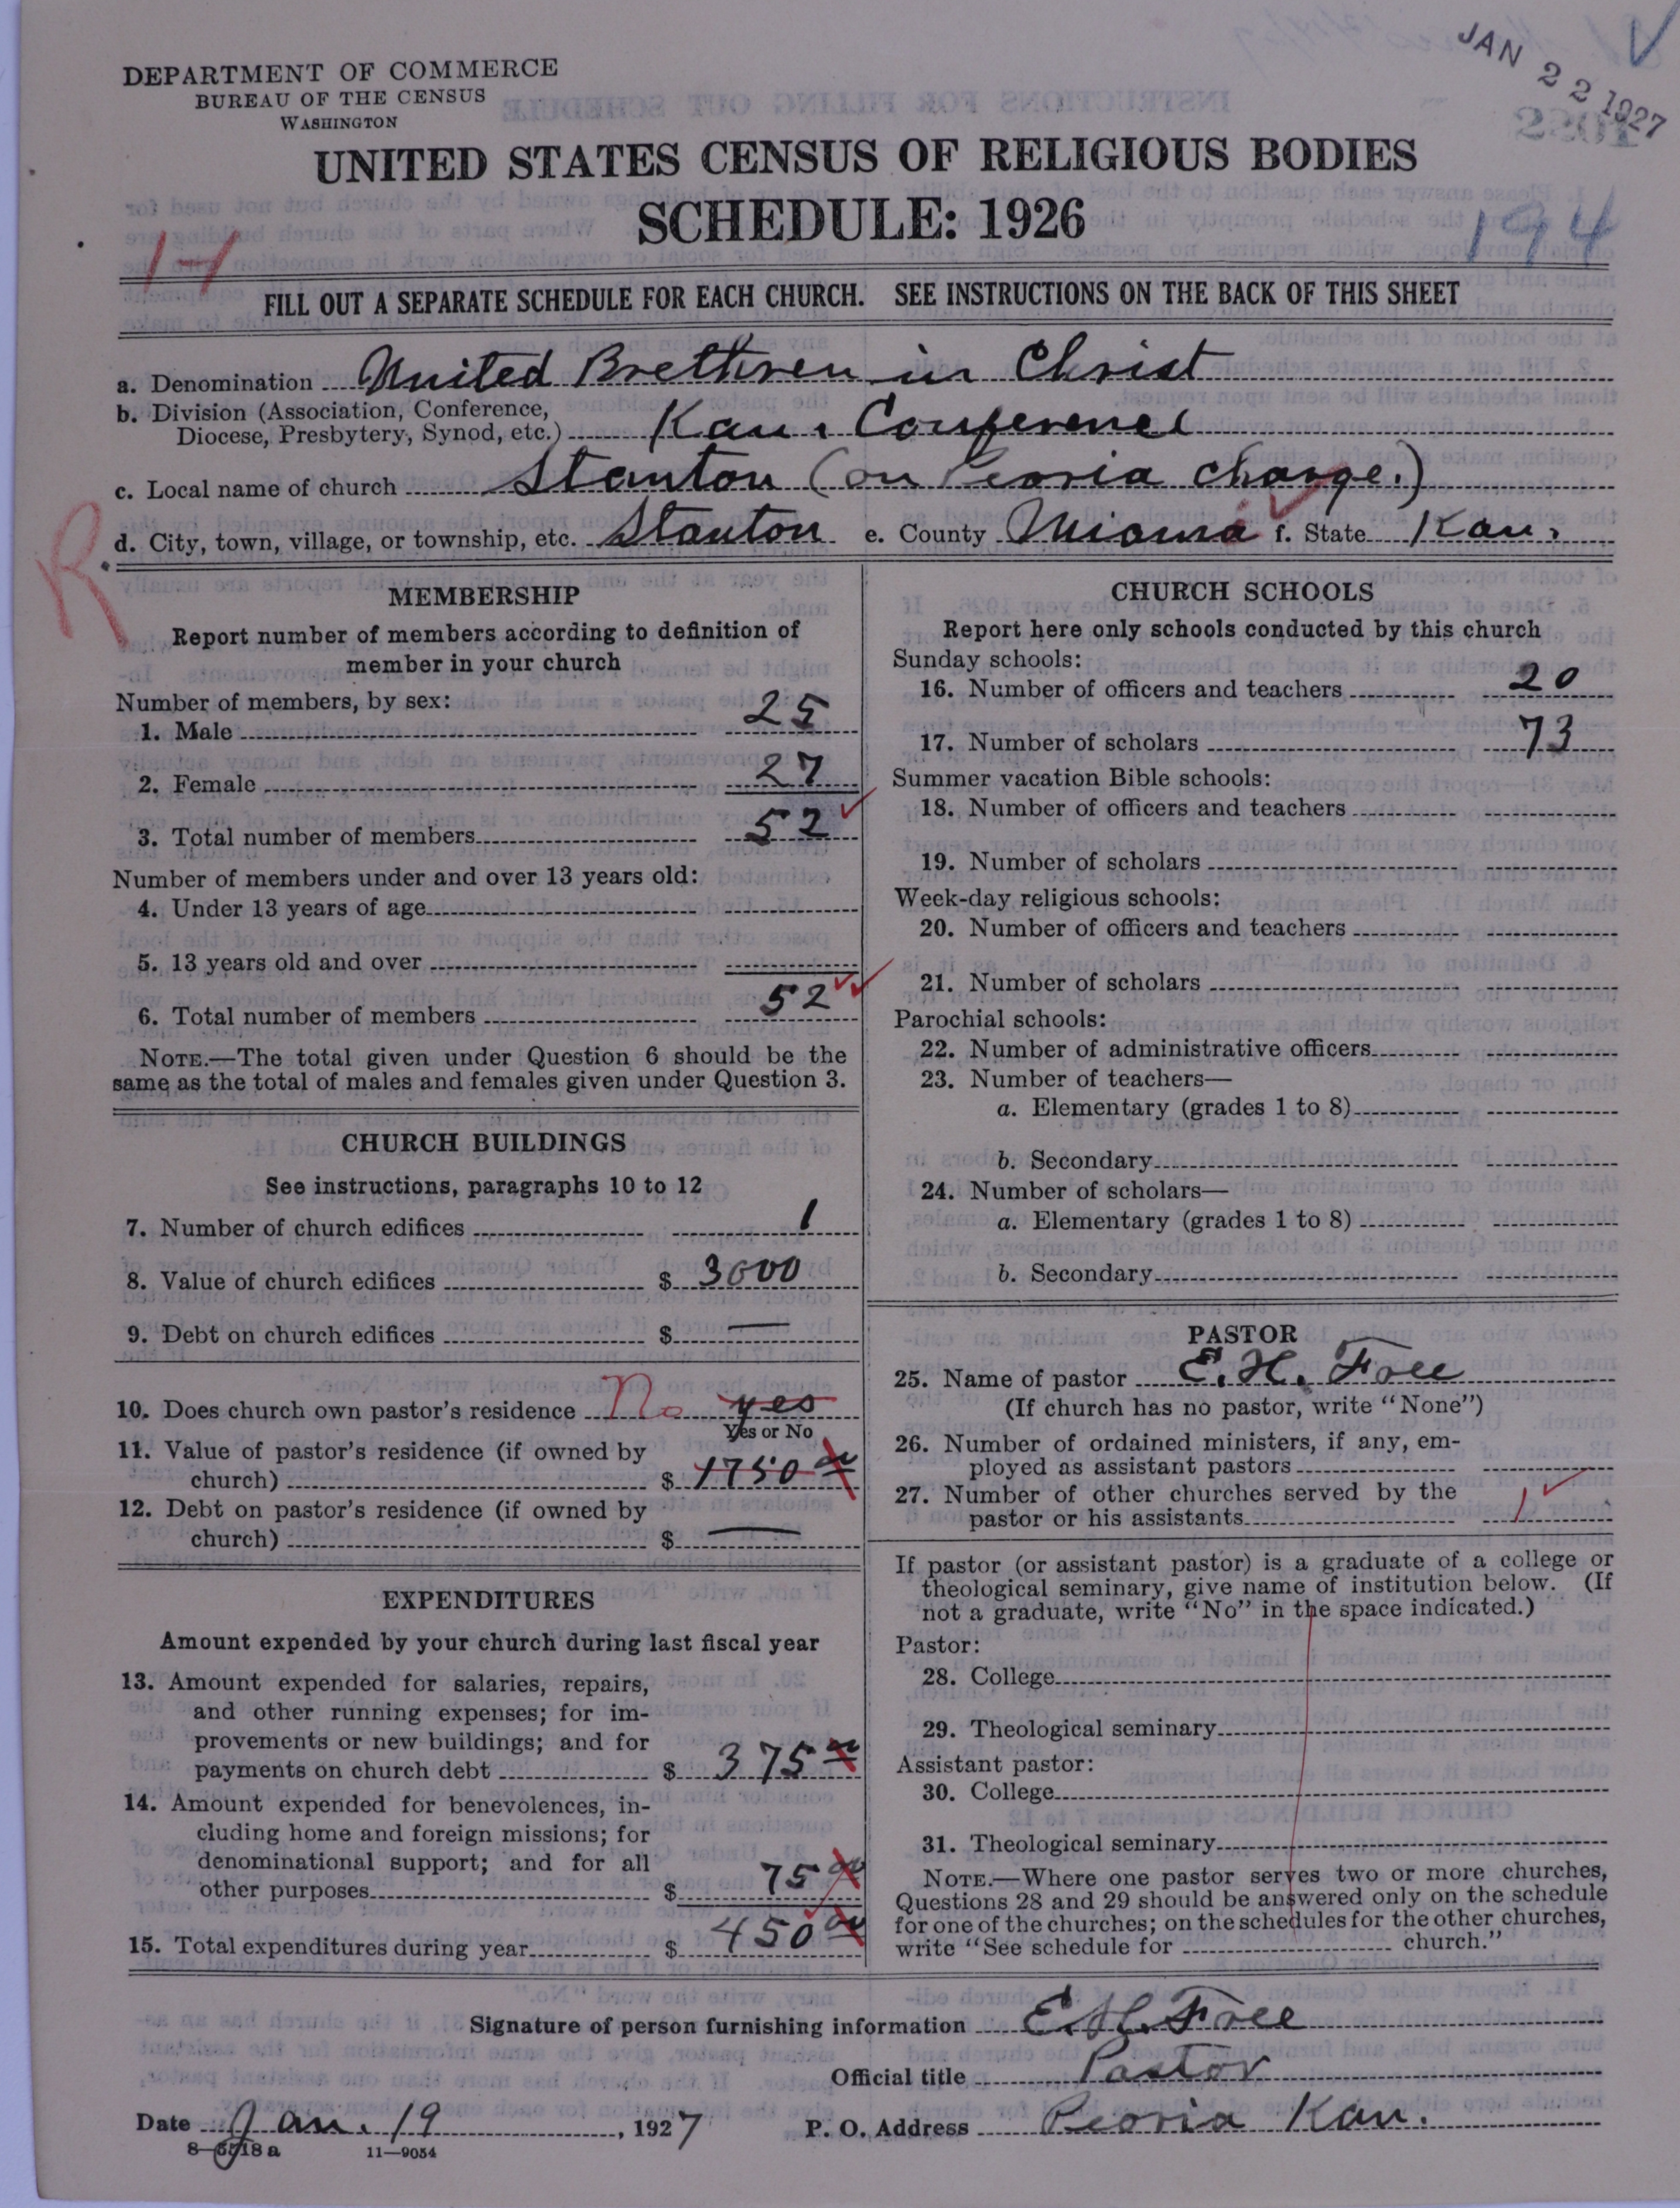 JAN 22 1927
DEPARTMENT OF COMMERCE
BUREAU OF THE CENSUS
WASHINGTON
UNITED STATES CENSUS OF RELIGIOUS BODIES
SCHEDULE: 1926
1-1
194
FILL OUT A SEPARATE SCHEDULE FOR EACH CHURCH. SEE INSTRUCTIONS ON THE BACK OF THIS SHEET
a. Denomination United Brethren in Christ
b. Division (Association, Conference,
Diocese, Presbytery, Synod, etc.) Kan. Conference
c. Local name of church Stanton (on Peoria charge.)
d. City, town, village, or township, etc. Stanton e. County Miama f. State Kan.
R
MEMBERSHIP
Report number of members according to definition of
member in your church
Number of members, by sex:
1. Male 25
2. Female 27
3. Total number of members 52
Number of members under and over 13 years old:
4. Under 13 years of age
5. 13 years old and over
6. Total number of members 52
NOTE.—The total given under Question 6 should be the
same as the total of males and females given under Question 3.
CHURCH BUILDINGS
See instructions, paragraphs 10 to 12
7. Number of church edifices 1
8. Value of church edifices $ 3000
9. Debt on church edifices $ —
10. Does church own pastor's residence No yes
Yes or No
11. Value of pastor's residence (if owned by
church) $ 1750 00
12. Debt on pastor's residence (if owned by
church) $ —
EXPENDITURES
Amount expended by your church during last fiscal year
13. Amount expended for salaries, repairs,
and other running expenses; for im-
provements or new buildings; and for
payments on church debt $ 375 00
14. Amount expended for benevolences, in-
cluding home and foreign missions; for
denominational support; and for all
other purposes $ 75 00
15. Total expenditures during year $ 450 00
CHURCH SCHOOLS
Report here only schools conducted by this church
Sunday schools:
16. Number of officers and teachers 20
17. Number of scholars 73
Summer vacation Bible schools:
18. Number of officers and teachers
19. Number of scholars
Week-day religious schools:
20. Number of officers and teachers
21. Number of scholars
Parochial schools:
22. Number of administrative officers
23. Number of teachers—
a. Elementary (grades 1 to 8)
b. Secondary
24. Number of scholars—
a. Elementary (grades 1 to 8)
b. Secondary
PASTOR
25. Name of pastor E. H. Free
(If church has no pastor, write "None")
26. Number of ordained ministers, if any, em-
ployed as assistant pastors
27. Number of other churches served by the
pastor or his assistants 1
If pastor (or assistant pastor) is a graduate of a college or
theological seminary, give name of institution below. (If
not a graduate, write "No" in the space indicated.)
Pastor:
28. College
29. Theological seminary
Assistant pastor:
30. College
31. Theological seminary
NOTE.—Where one pastor serves two or more churches,
Questions 28 and 29 should be answered only on the schedule
for one of the churches; on the schedules for the other churches,
write "See schedule for church."
Signature of person furnishing information E. H. Free
Official title Pastor
Date Jan. 19, 1927 P. O. Address Peoria Kan.
8—6518a 11—9054